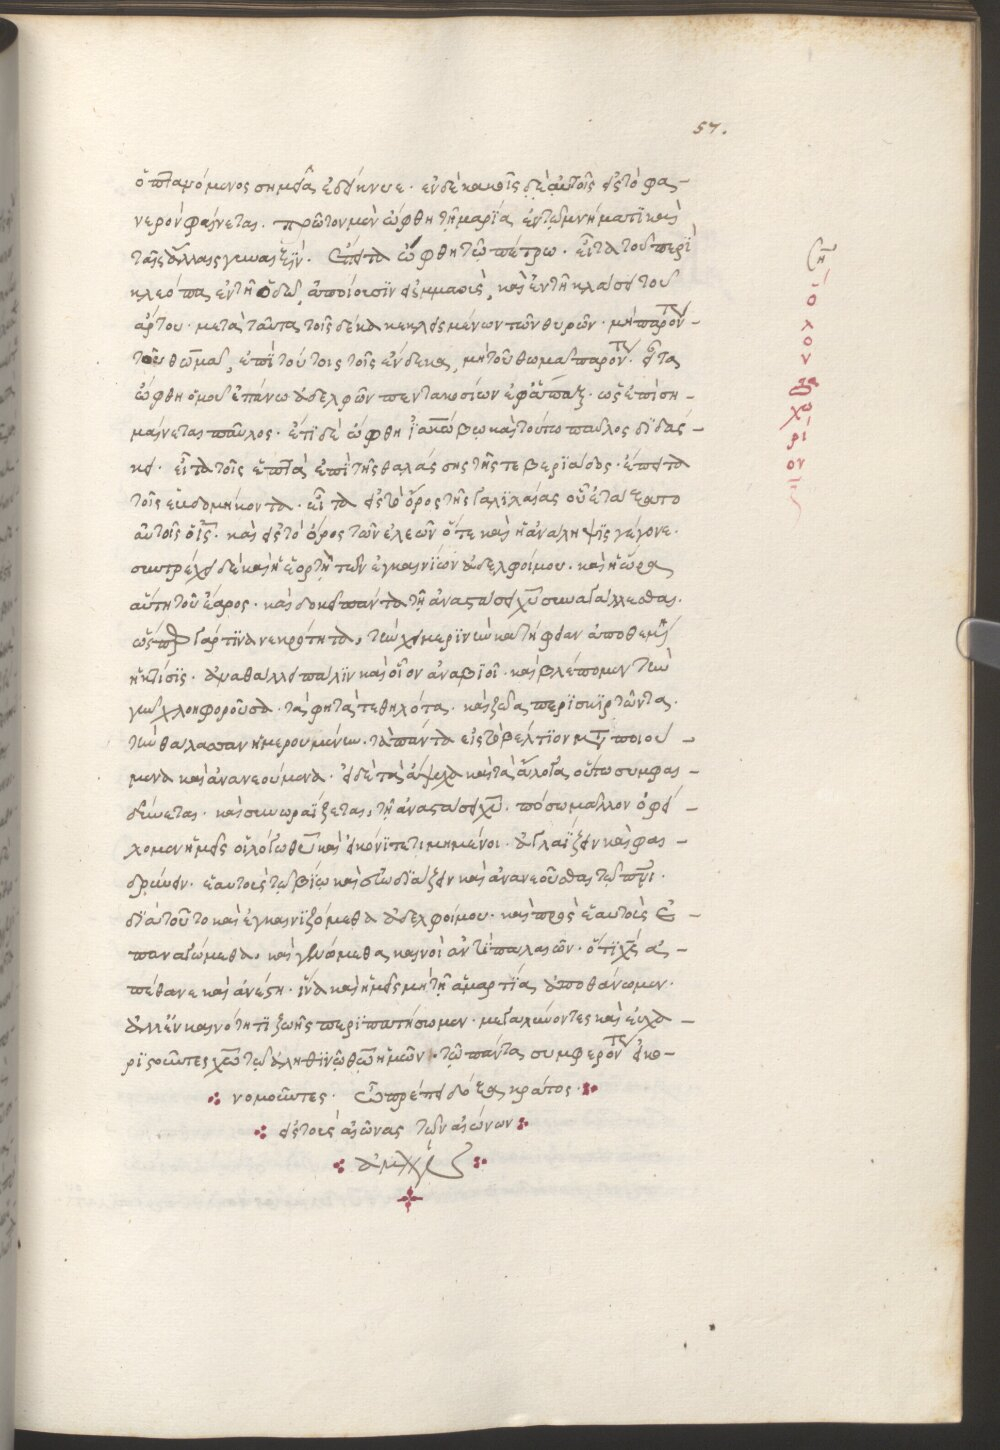 57.
ὁ πταψόμενος σημεῖα ἐδείκνυε· ἐν δέκα καθ' ἃς δὲ αὐτοῖς εἰς τὸ φα-
νερὸν φαίνεται. πρῶτον μὲν ὤφθη τῇ μαρία ἐν τῷ μνήματι καὶ
ταῖς ἄλλαις γυναιξΐν. ἔπειτα ὤφθη τῷ πέτρω. εἶτα τοῖς περὶ
κλεόπα ἐν τῇ ὁδῷ, εἰς ἐμμαοὺς, καὶ ἐν τῇ κλάσει τοῦ
ἄρτου· μετὰ ταῦτα τοῖς δέκα κεκλεισμένων τῶν θυρῶν· μὴ παρόντος
τοῦ θωμᾶ, ἐπὶ τούτοις τοῖς ἕνδεκα, μὴ τοῦ θωμᾶ παρόντος. εἶτα
ὤφθη ὁμοῦ ἐπάνω ἀδελφῶν πεντακοσίων ἐφάπαξ. ὡς ἐπιση-
μαίνεται παῦλος. ἔτι δὲ ὤφθη ἰακώβῳ καὶ τοῦτο παῦλος διδάσ-
κει· εἶτα τοῖς ἑπτὰ ἐπὶ τῆς θαλάσσης τῆς τιβεριάδος. ἔπειτα
τοῖς ἑβδομήκοντα. εἶτα εἰς τὸ ὄρος τῆς γαλιλαίας οὗ ἐτάξατο
αὐτοῖς ὁ ἰς. καὶ εἰς τὸ ὄρος τῶν ἐλεῶν ὅτε καὶ ἡ ἀνάληψις γέγονε.
συντρέχει δὲ καὶ ἡ ἑορτὴ τῶν ἐγκαινίων ἀδελφοί μου. καὶ ἡ ὥρα
αὕτη τοῦ ἔαρος. καὶ δοκεῖ πάντα τῇ ἀναστάσει χῦ συναγάλλεσθαι.
νεκρότητα, τὴν χειμερινὴν κατήφειαν ἀποθεμένη
ἡ κτίσις. ἀναθάλλει πάλιν καὶ οἷον ἀναβιοῖ. καὶ βλέπομεν τὴν
γῆν χλοηφοροῦσα. τὰ φητὰ τεθηλότα. καὶ ζῶα περισκιρτῶντα.
τὴν θάλασσαν ἡμερουμένην. τὰ πάντα εἰς τὸ βέλτιον μεταποιού-
μενα καὶ ἀνανεούμενα. εἰ δὲ τὰ ἄψυχα καὶ τὰ ἄλογα οὕτω συμφαι-
δρύνεται. καὶ συνωραΐζεται, τῇ ἀναστάσει χῦ. πόσω μᾶλλον ὀφεί-
λομεν ἡμεῖς οἱ λόγω θεοῦ καὶ εἰκόνι τετιμημένοι. ἀγλαΐζειν καὶ φαι-
δρύνειν. ἑαυτοὺς τῷ βίῳ καὶ συνδιάζειν καὶ ἀνανεοῦσθαι τῷ πνι.
διὰ τοῦτο καὶ ἐγκαινιζόμεθα ἀδελφοί μου. καὶ πρὸς ἑαυτοὺς ἐ-
παναγώμεθα. καὶ γενώμεθα καινοὶ ἀντὶ παλαιῶν. ὅτι χς ἀ-
πέθανε καὶ ἀνέστη. ἵνα καὶ ἡμεῖς μὴ τῇ ἁμαρτία ἀποθάνωμεν.
ἀλλ' ἐν καινότητι ζωῆς περιπατήσωμεν. μεγαλύνοντες καὶ εὐχα-
ριστοῦντες χῶ τῷ ἀληθινῷ θῶ ἡμῶν. τῷ πάντα συμφερόντως οἰκο-
νομοῦντες. ὧ πρέπει δόξα κράτος
εἰς τοὺς αἰῶνας τῶν αἰώνων
ἀμήν
ὅλον
χω
ρί
ον